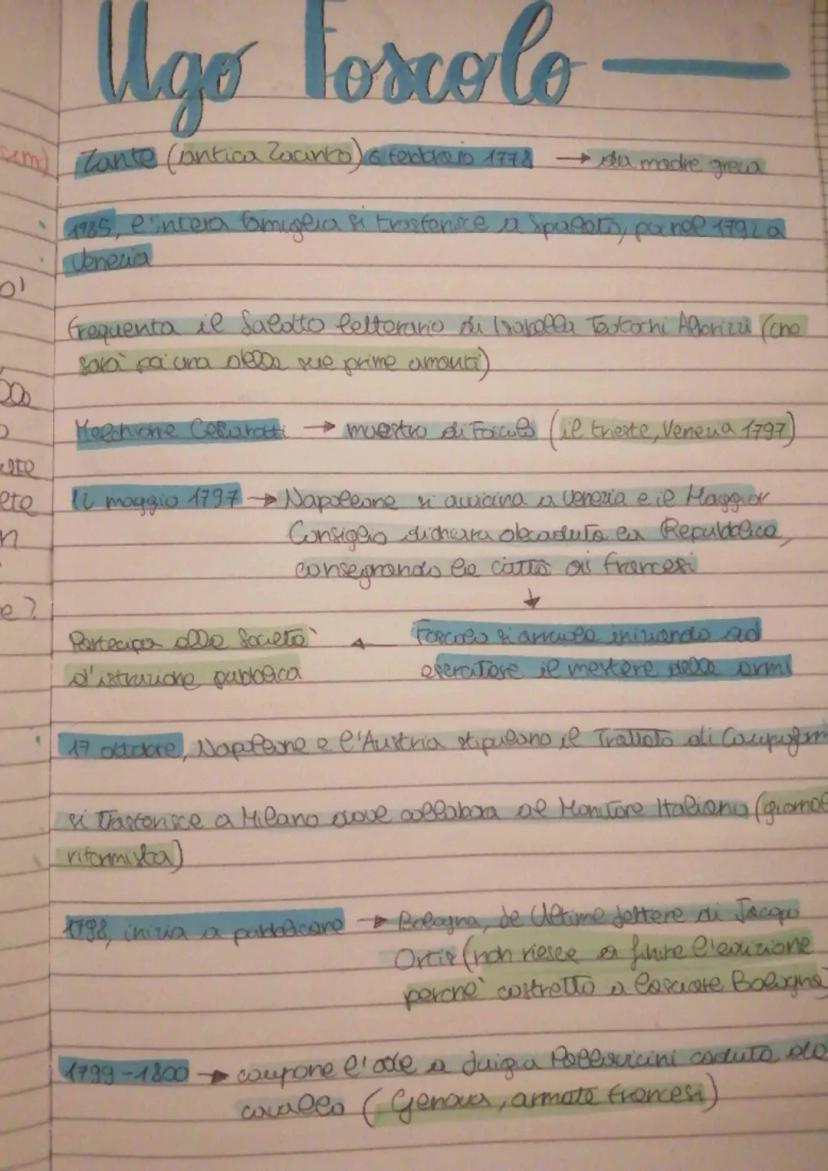 Ugo Foscolo
Zante (antica Zacinto) 6 febbraio 1778 → da madre greca
1985, l'intera famiglia si trasferisce a Spalato, poi nel 1792 a
Venezia
frequenta il salotto letterario di Isabella Teotochi Albrizzi (che
sarà poi una delle sue prime amanti)
Melchiorre Cesarotti → maestro di Foscolo (il trieste, Venezia 1797)
12 maggio 1797 → Napoleone si avvicina a Venezia e il Maggior
Consiglio dichiara decaduta la Repubblica,
consegnando la città ai francesi
↓
Partecipa alla Società ← Foscolo si arruola iniziando ad
d'istruzione pubblica esercitare il mestiere delle armi
17 ottobre, Napoleone e l'Austria stipulano il Trattato di Campoform
si trasferisce a Milano dove collabora al Monitore Italiano (giornale
riformista)
1798, inizia a pubblicare → Bologna, le Ultime lettere di Jacopo
Ortis (non riesce a finire l'edizione
perché costretto a lasciare Bologna)
1799-1800 → compone l'ode a Luigia Pallavicini caduta da
cavallo (Genova, armate francesi)